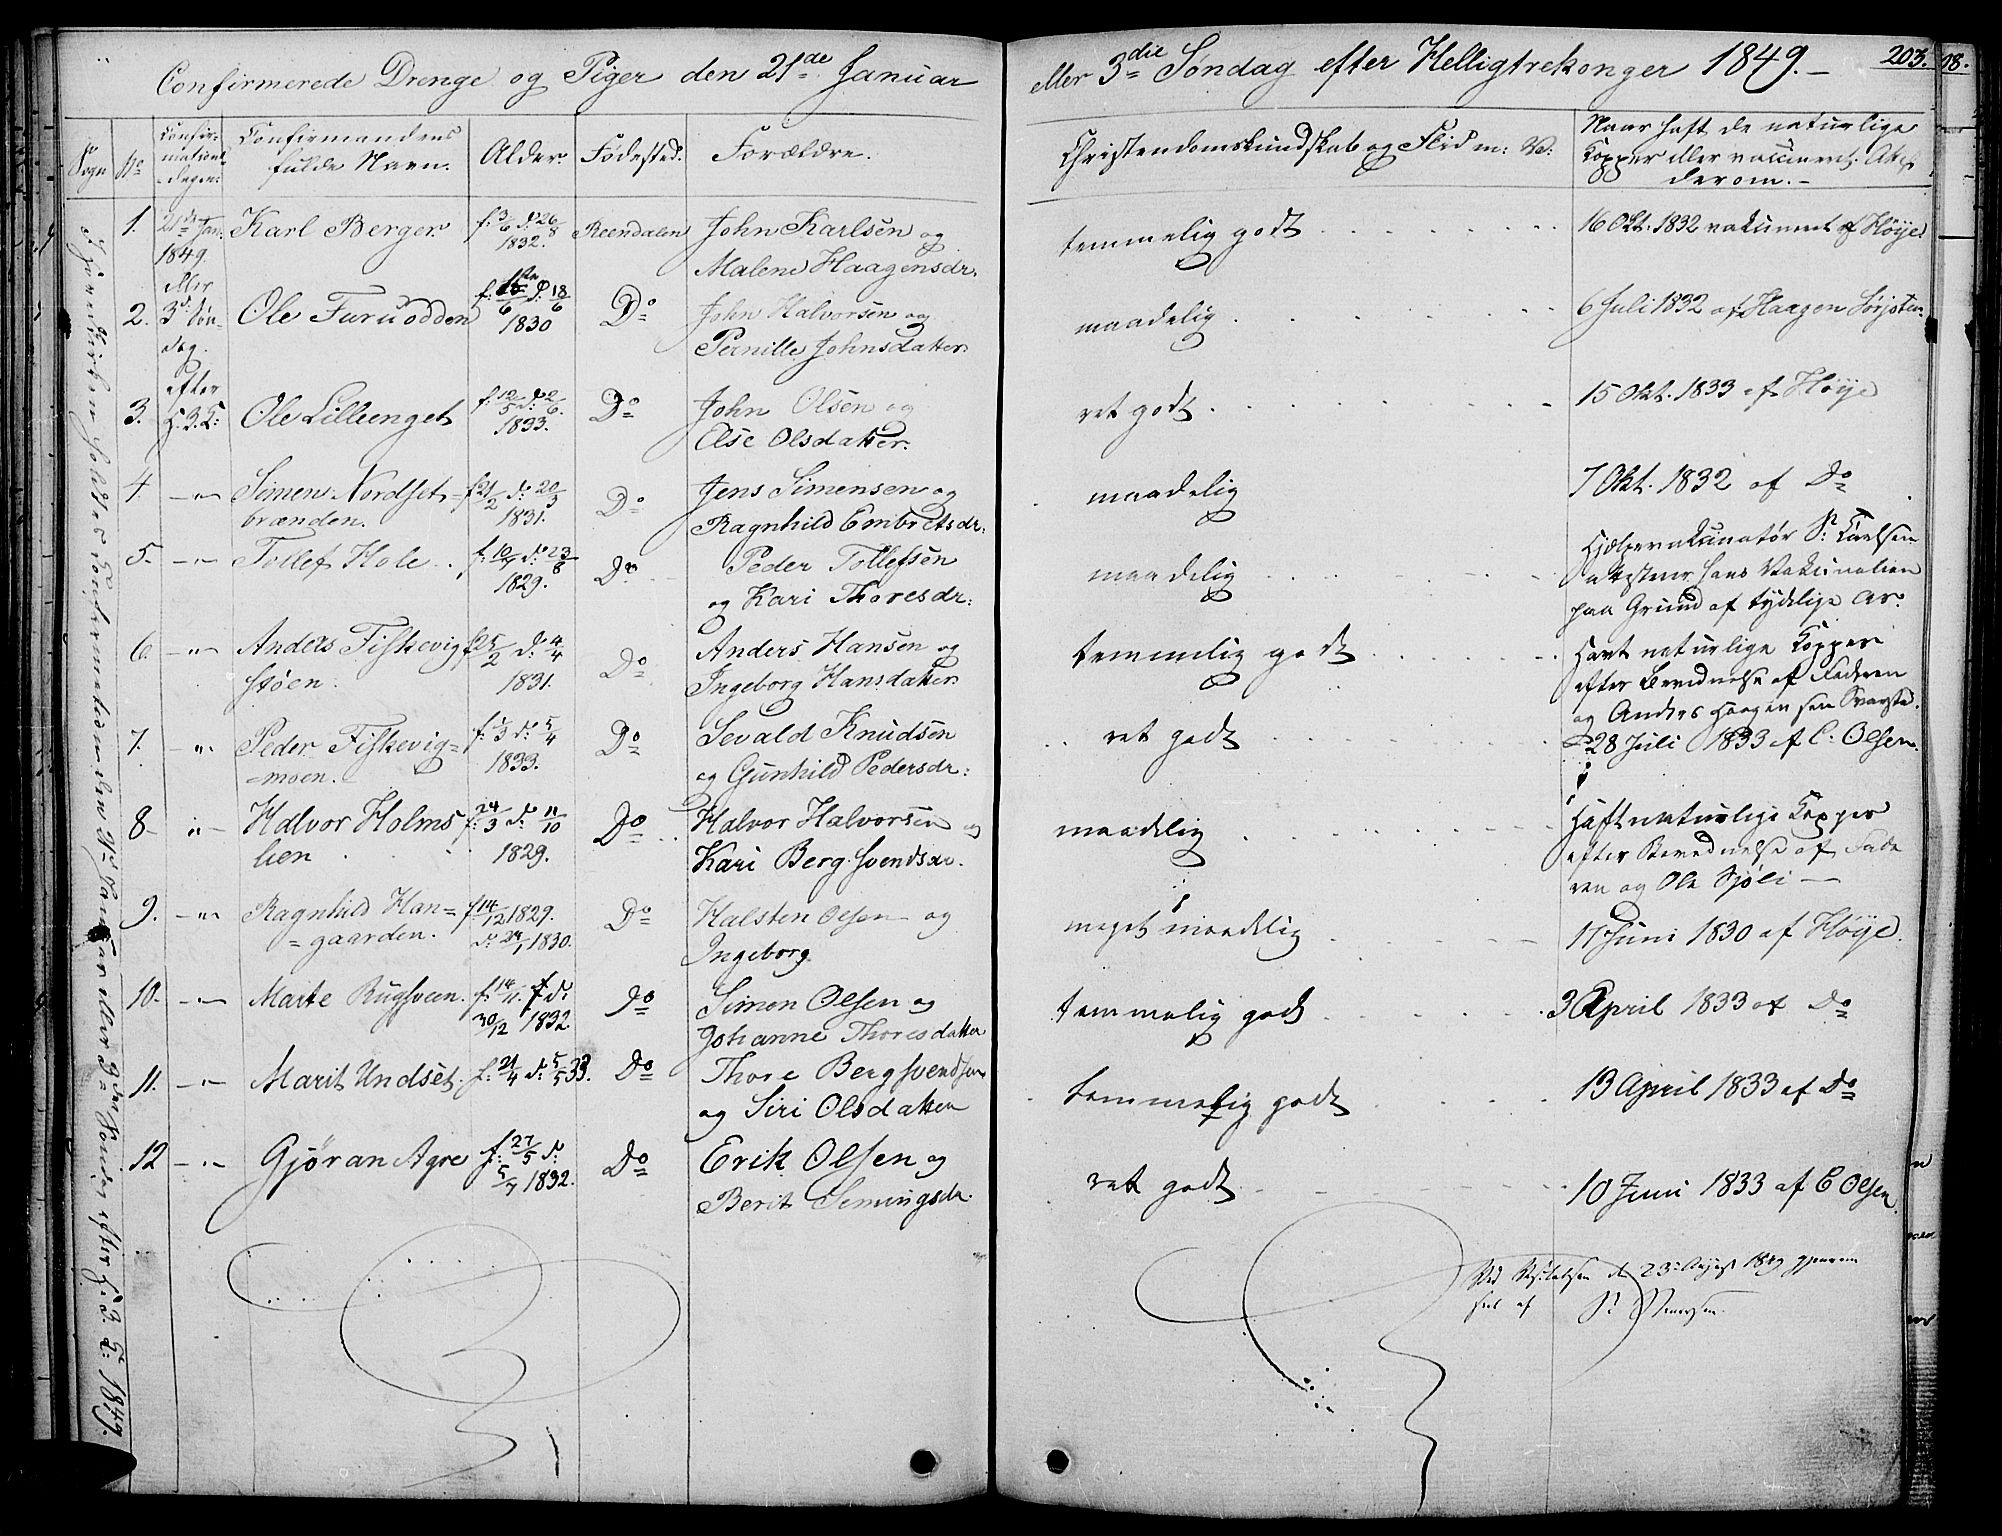 Confirmerede Drenge og Piger den 21de Januar
eller 3die Søndag efter Helligtrekonger 1849.
203.
Sogn No Confirmations Dagen: Confirmandens fulde Navn. Alder. Fødested. Forældre.
Christendomskundskab og Flid m: V:
Naar haft de naturlige
Kopper eller vaccineret. Attest
derom.
1. 21de Jan: Karl Berger f: 3/6 d: 26/8 Reendalen John Karlsen og
1849. 1832. Malene Haagensdr.
temmelig godt
16 Okt. 1832 vakcineret af Höye
eller
2. 3die Søn- Ole Furuodden f: 6 d: 18/6 Do John Halvorsen og
dag 1830 Pernille Johnsdatter
maadelig
6 Juli 1832 af Haagen
efter
3. H. 3. K: Ole Lilleenget f: 12/5 d: 2/6. Do John Olsen og
1833. Else Olsdatter.
ret godt
15 Okt. 1833 af Höye
4. -"- Simen Nordset- f 21/2 d: 20/3 Do Jens Simensen og
brænden. 1831. Ragnhild Embretsdr.
maadelig
7 Okt. 1832 af Do
5. -"- Tollef Hole f: 10/7 d: 23/8 Do Peder Tollefsen
1829. og Kari Thoresdr:
maadelig
Hjelpevakcinatør P. Karlsen
attesterer hans Vakcination
paa Grund af tydelige Ar.
6. -"- Anders Fiskevig f 25/2 d: 4/4 Do Anders Hansen og
støen. 1831. Ingeborg Hansdatter
temmelig godt
Havt naturlige Kopper
efter Bevidnelse af Faderen
og Anders Haagensen
7. -"- Peder Fiskevig= f: 1/3 d: 5/4 Do Sevald Knudsen
=moen. 1833. og Gunhild Pedersdr:
ret godt
28 Juli 1833 af C. Olsen.
8 -"- Halvor Holms f: 24/3 d: 11/10 Do Halvor Halvorsen og
lien 1829. Kari Berg Svendsdr.
maadelig
Haft naturlige Kopper
efter Bevidnelse af Fade
ren og Ole Sjöli
9. -"- Ragnhild Han= f 14/12 1829. Do Halsten Olsen og
=gaarden. d: 24/1 1830. Ingeborg
meget maadelig
17 Juni 1830 af Höye.
10. -"- Marte Rugsveen. f: 14/11. d: Do Simen Olsen og
30/12 1832 Johanne Thoresdatter
temmelig godt
3 April 1833 af Do
11. -"- Marit Undset. f: 21/4 d: 5/5 33. Do Thore Bergsvendsen
og Siri Olsdatter
temmelig godt
13 April 1833 af Do
12 -"- Gjøran Agre f: 27/5 d: Do Erik Olsen og
5/7 1832. Berit Semingsdr.
ret godt
10 Juni 1833 af C Olsen
Ved Visitatsen d 23 August 1849 gjennem
seet af